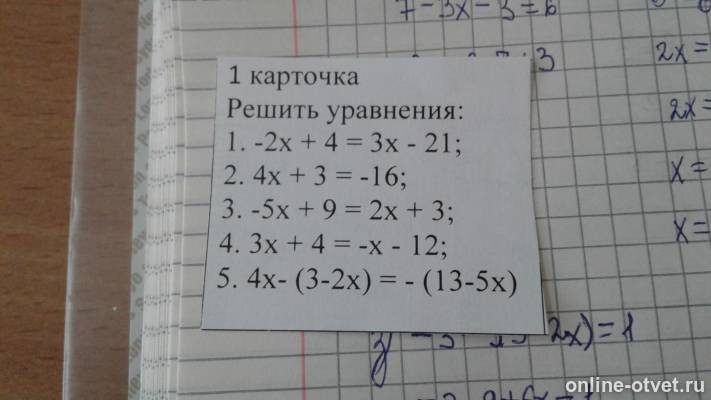 7 - 3x - 3 = 6
2x =
1 карточка
Решить уравнения:
2x =
1. -2x + 4 = 3x - 21;
2. 4x + 3 = -16;
x =
3. -5x + 9 = 2x + 3;
x =
4. 3x + 4 = -x - 12;
5. 4x- (3-2x) = - (13-5x)
2x) = 1
online-otvet.ru